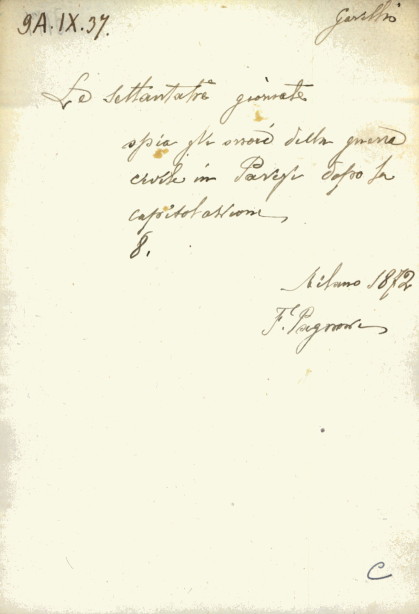 9A.IX.37.
Le settantatrè giornate
ossia gli orrori della guerra
civile in Parigi dopo la
capitolazione
8.
Milano 1872
F. Pagnoni
C